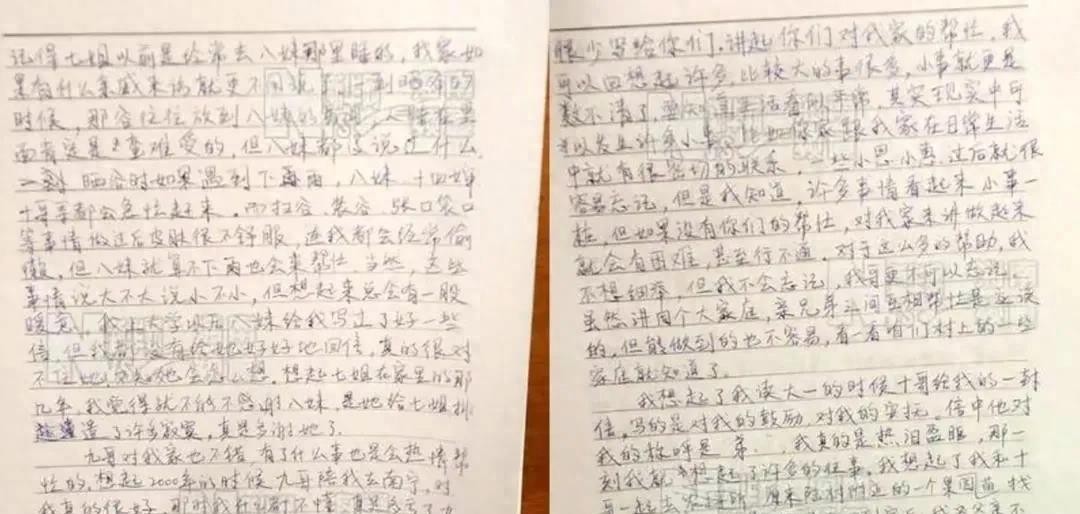 记得七姐以前是经常去八妹那里睡的，我家如
果有什么亲戚来访就更不用说了。到晒谷的
时候，那谷往往放到八妹的房间，人睡在里
面肯定是难受的，但八妹都没说过什么，
晒谷时如果遇到下雨，八妹、十四妹
十哥都会急忙起来。而扫谷、装谷、张口袋口
等事情做过后皮肤很不舒服，连我都会经常偷
懒，但八妹就算不下雨也会来帮忙。当然，这些
事情说大不大说小不小，但想起来总会有一股
暖意，我上大学以后八妹给我写过了好一些
信，但我都没有给她好好地回信，真的很对
不住她，不知她会怎么想。想起七姐在家里的那
几年，我觉得就不能不感谢八妹，是她给七姐排
遣了许多寂寞，真是多谢她了。
九哥对我家也不错，有了什么事也是会热情帮
忙的，想起2000年的时候九哥陪我去南宁，对
我真的很好，那时我什么都不懂，真是多亏了九
很少写给你们。讲起你们对我家的帮忙，我
可以回想起许多，比较大的事很多，小事就更是
数不清了，要知道生活看似平常，其实现实中可
以发生许多小事，比如你家跟我家在日常生活
中就有很密切的联系，一些小恩小惠，过后就很
容易忘记，但是我知道，许多事情看起来小事一
桩，但如果没有你们的帮忙，对我家来讲做起来
就会有困难，甚至行不通。对于这么多的帮助，我
不想细举，但我不会忘记，我哥更不可以忘记。
虽然讲同个大家庭，亲兄弟之间互相帮忙是应该
的，但能做到的也不容易，看一看咱们村上的一些
家庭就知道了。
我想起了我读大一的时候十哥给我的一封
信，写的是对我的鼓励，对我的安抚。信中他对
我的称呼是弟，我真的是热泪盈眶，那一
刻我就想起了许多的往事，我想起了我和十
哥一起去农技所，原来陆村附近的一个果园苗找